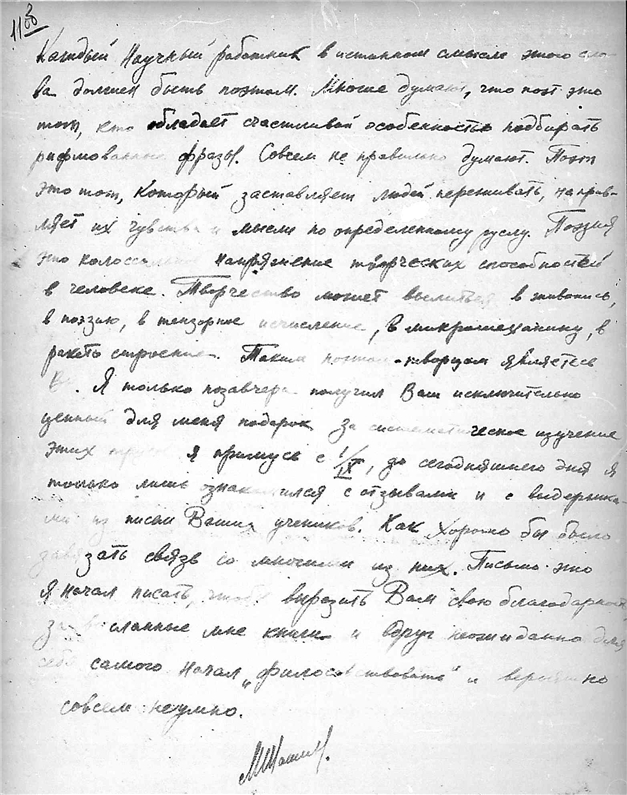 Каждый научный работник в истинном смысле этого сло-
ва должен быть поэтом. Многие думают, что поэт это
тот, кто обладает счастливой особенностью подбирать
рифмованные фразы. Совсем не правильно думают. Поэт
это тот, который заставляет людей переживать, направ-
ляет их чувства и мысли по определенному руслу. Поэзия
это колоссальное напряжение творческих способностей
в человеке. Творчество может вылиться в живопись,
в поэзию, в тензорное исчисление, в микромеханику, в
ракетостроение. Таким поэтом-творцом являетесь
Вы. Я только позавчера получил Ваш исключительно
ценный для меня подарок за систематическое изучение
этих я примусь с 1/IX, до сегодняшнего дня я
только лишь ознакомился с отзывами и с выдержка-
ми из писем Ваших учеников. Как хорошо бы было
завязать связь со многими из них. Письмо это
я начал писать, чтобы выразить Вам свою благодарность
за сланные мне книги и вдруг неожиданно для
себя самого начал „философствовать" и вероятно
совсем неумно.